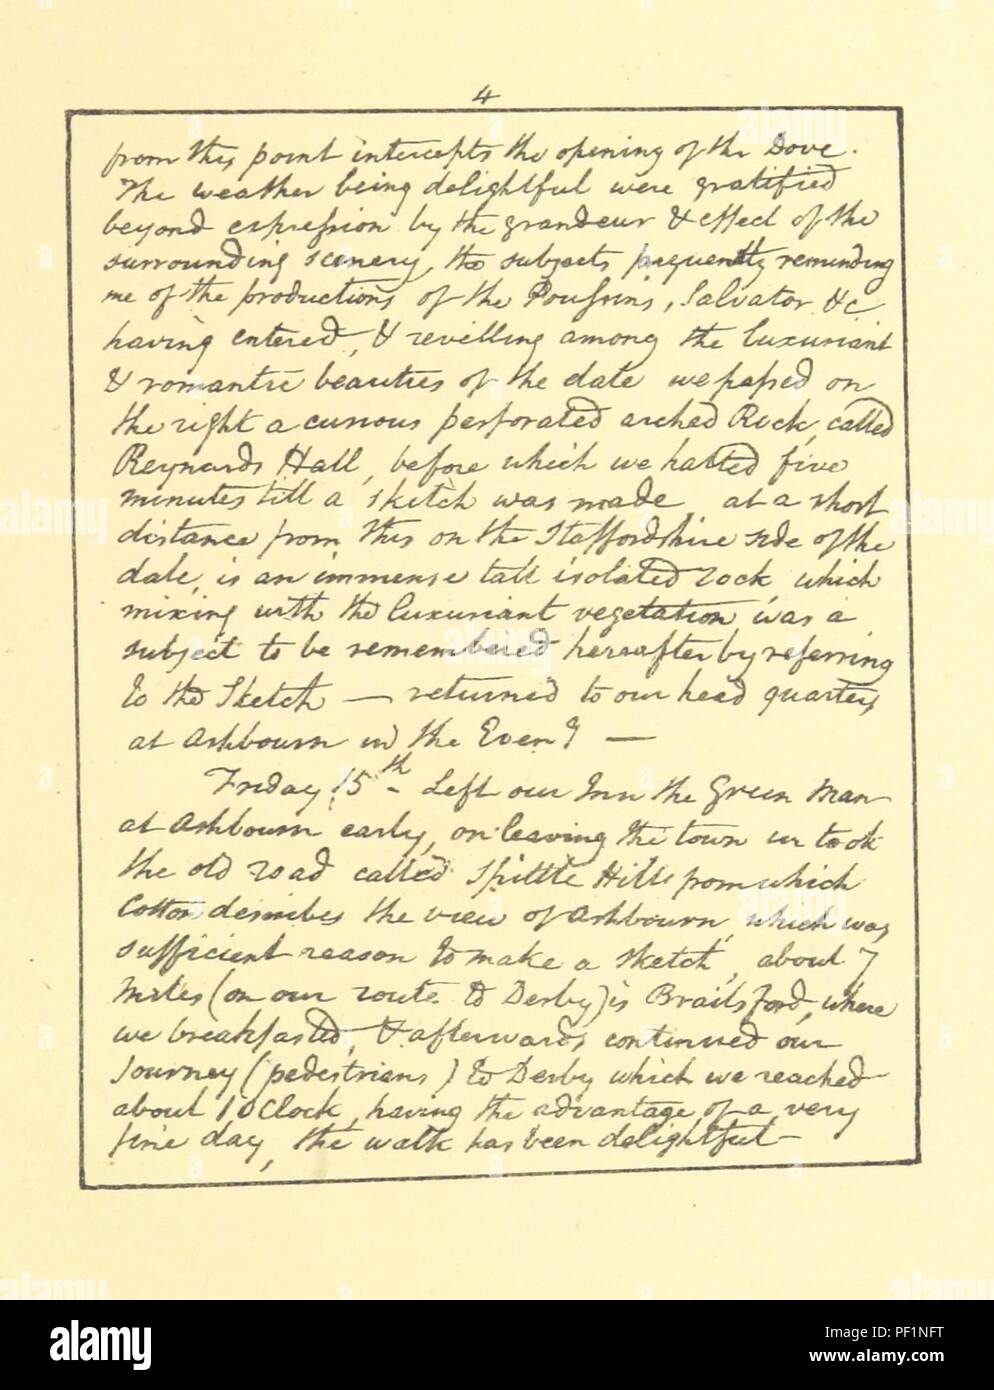 4
from this point intercepts the opening of the Dove.
The weather being delightful were gratified
beyond expression by the grandeur & effect of the
surrounding scenery, the subjects frequently reminding
me of the productions of the Poussins, Salvator &c
having entered, & revelling among the luxuriant
& romantic beauties of the dale we passed on
the right a curious perforated arched Rock, called
Reynards Hall, before which we halted five
minutes till a sketch was made at a short
distance from this on the Staffordshire side of the
dale, is an immense tall isolated rock which
mixing with the luxuriant vegetation was a
subject to be remembered hereafter by referring
to the Sketch — returned to our head quarters
at Ashbourn in the Eveng —
Friday 15th - Left our Inn the Green Man
at Ashbourn early, on leaving the town we took
the old road called Spittle Hills from which
Cotton describes the view of Ashbourn, which was
sufficient reason to make a sketch, about 7
Miles (on our route to Derby) is Brailsford, where
we breakfasted, & afterwards continued our
Journey (pedestrians) to Derby which we reached
about 1 OClock, having the advantage of a very
fine day, the walk has been delightful—
alamy
Image ID: PF1NFT
www.alamy.com